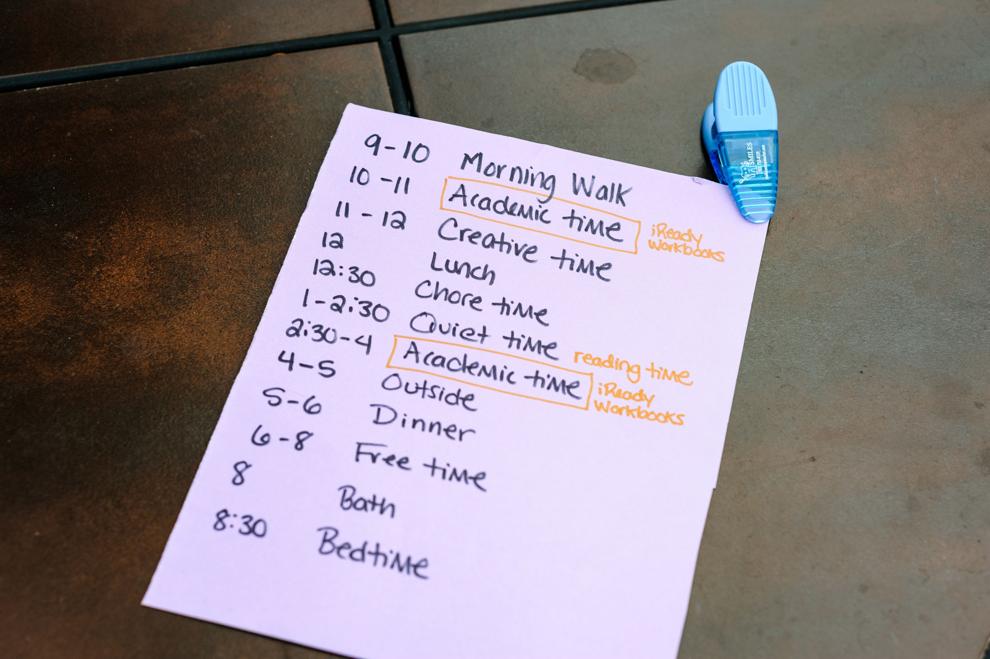 9-10 Morning Walk
10-11 Academic time iReady
Workbooks
11-12 Creative time
12 Lunch
12:30 Chore time
1-2:30 Quiet time reading time
2:30-4 Academic time iReady
Workbooks
4-5 Outside
5-6 Dinner
6-8 Free time
8 Bath
8:30 Bedtime
SMILES